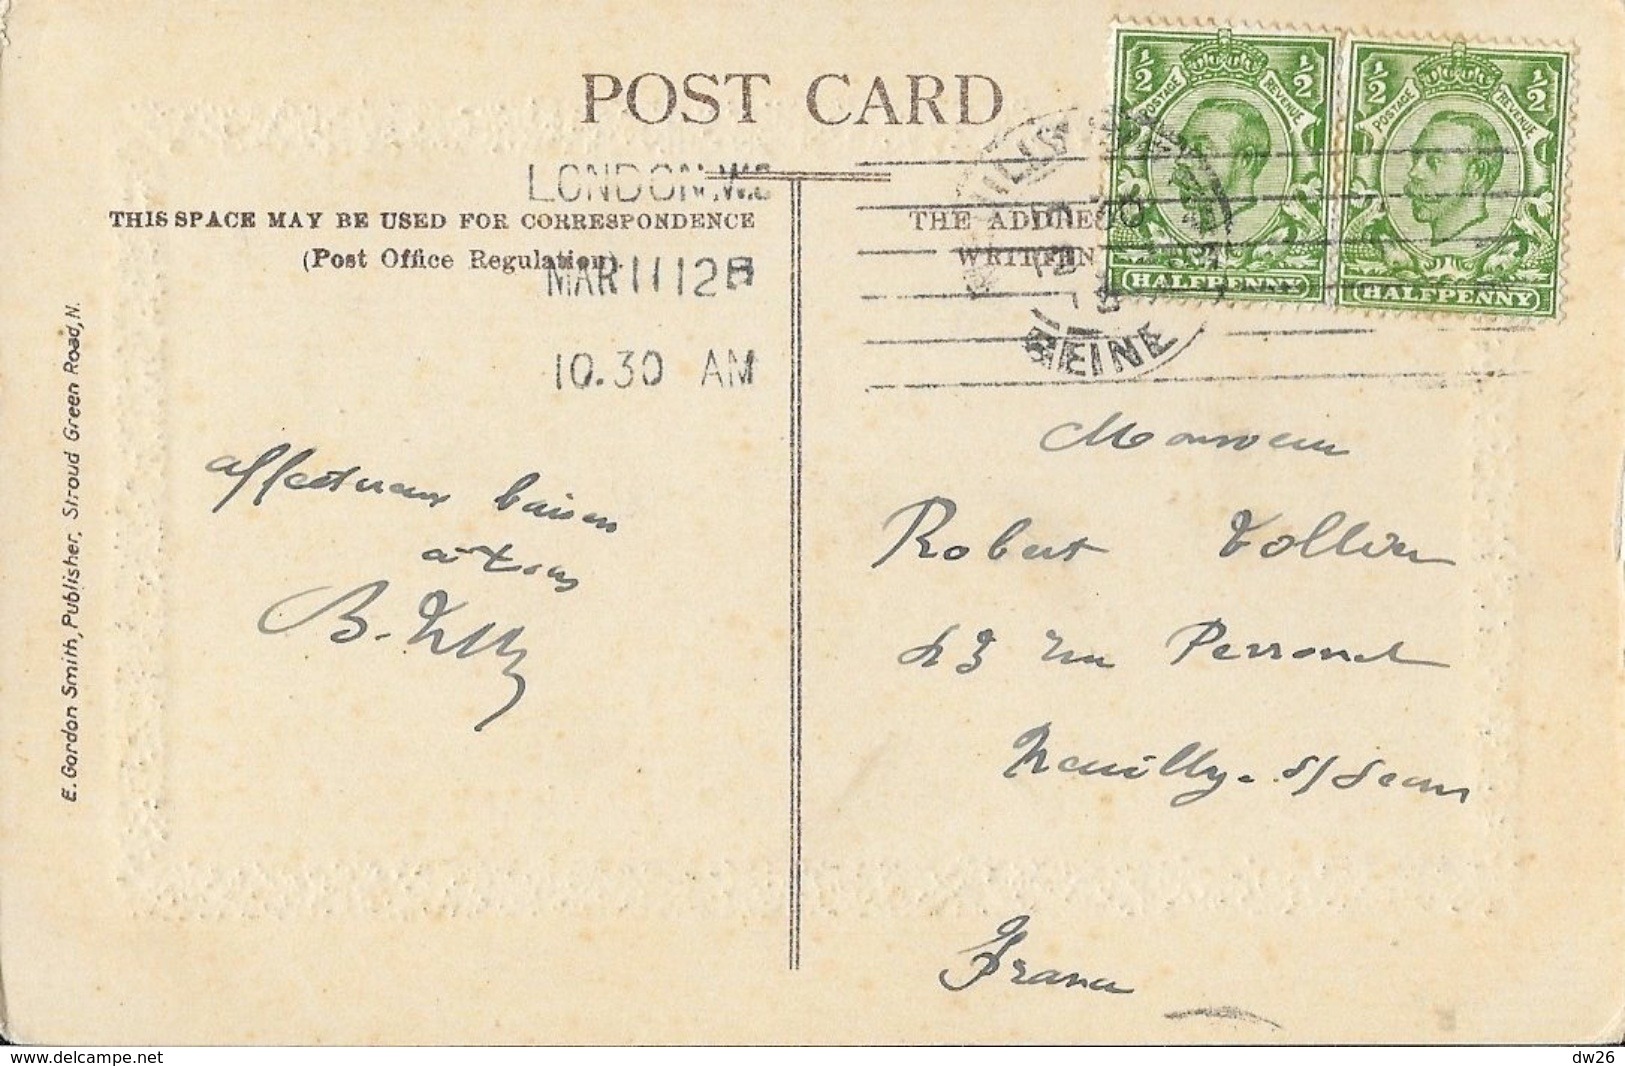 POST CARD
LONDON.W.C
THIS SPACE MAY BE USED FOR CORRESPONDENCE
(Post Office Regulation).
MAR 11 12
10.30 AM
THE ADDRE
WRITTEN
SEINE
½ ½
POSTAGE REVENUE
HALFPENNY
½ ½
POSTAGE REVENUE
HALFPENNY
E. Gordon Smith, Publisher, Stroud Green Road, N.
affectueux baisers
à tous
B.
Monsieur
Robert Tollier
43 rue Perronet
Neuilly-s/Seine
France
dw26